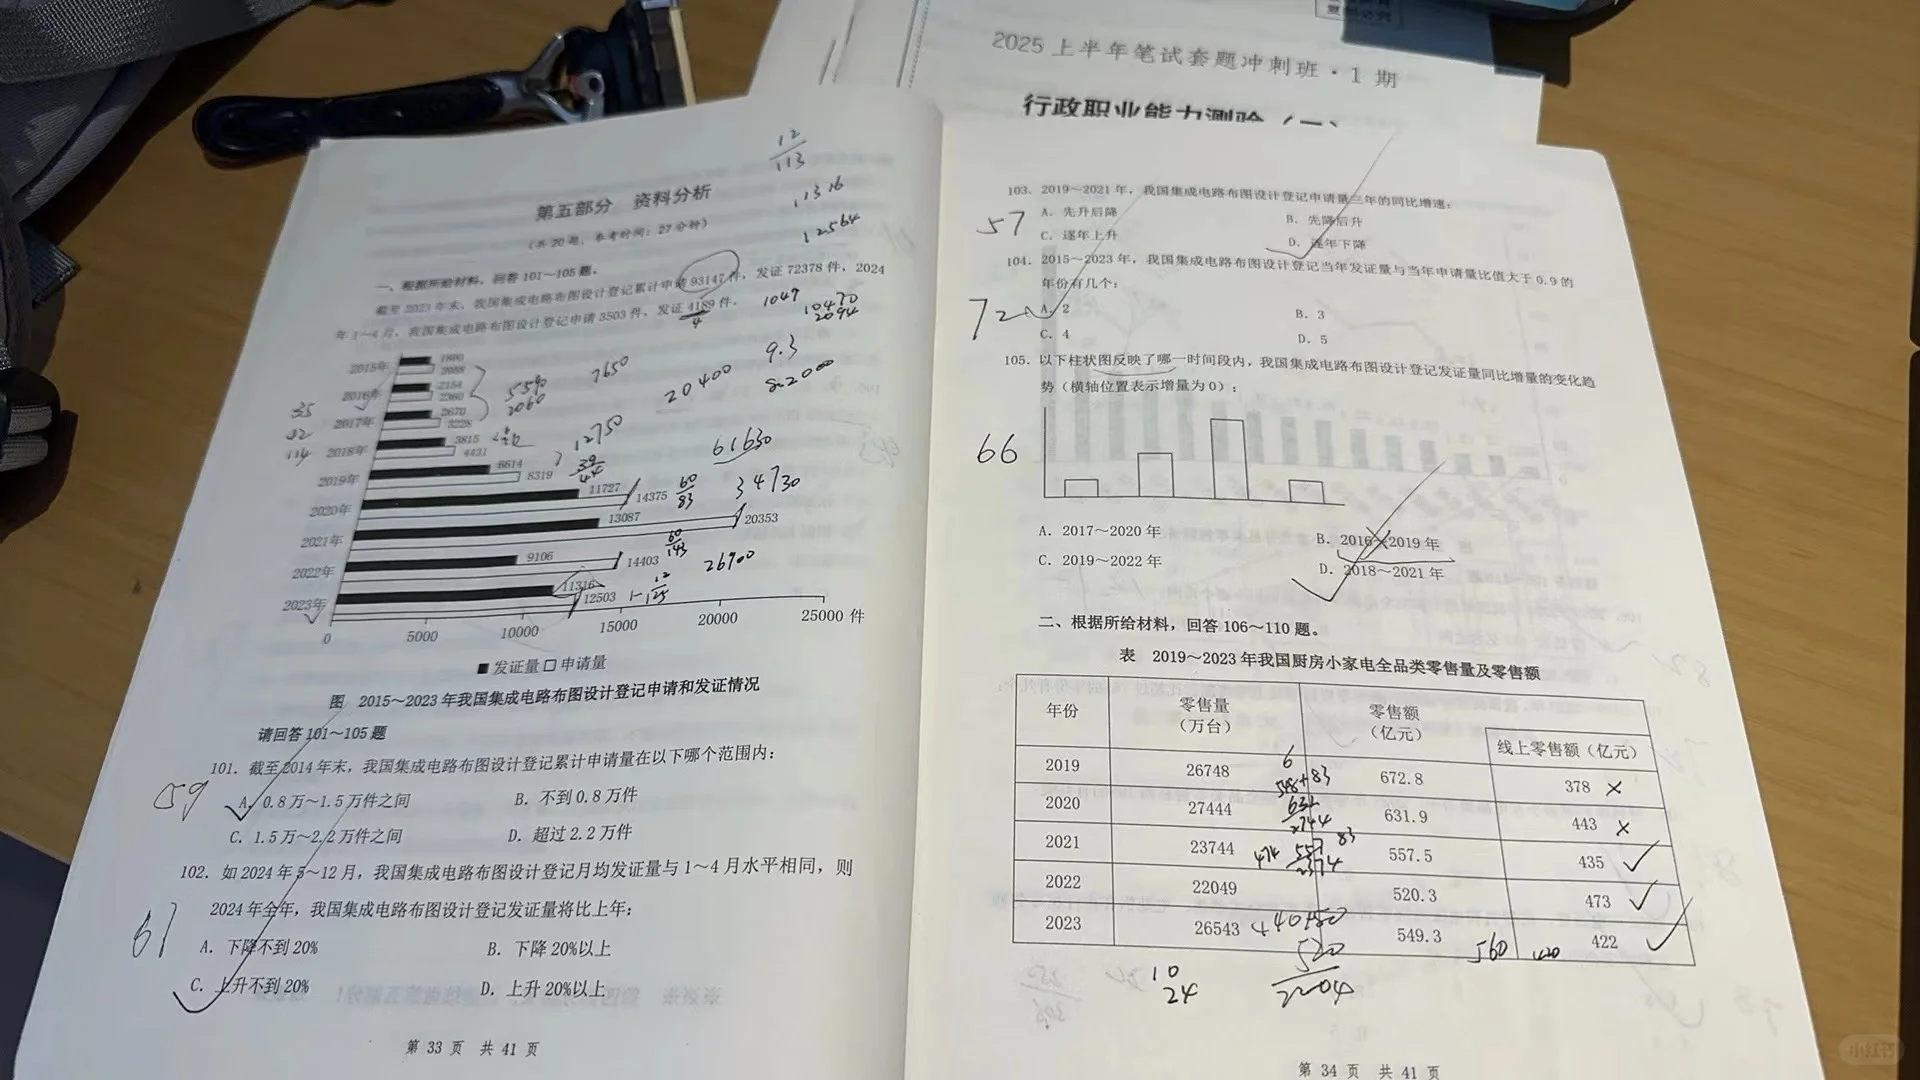 2025 上半年笔试套题冲刺班 · 1 期
行政职业能力测验（一）
12
113
11316
12564
第五部分 资料分析
（共 20 题，参考时间：27 分钟）
一、根据所给材料，回答 101～105 题。
截至 2023 年末，我国集成电路布图设计登记累计申请 93147 件，发证 72378 件，2024
年 1～4 月，我国集成电路布图设计登记申请 3503 件，发证 4189 件。
4
1047
10470
2094
9.3
82000
2015年 1800 2058
2016年 2154 2360
2017年 2670 3228
2018年 3815 4431
2019年 6614 8319
2020年 11727 14375
2021年 13087 20353
2022年 9106 14403
2023年 11316 12503
0 5000 10000 15000 20000 25000 件
5590
2060
7650
20400
12750
39
44
61630
60
83
34730
60
143
26900
12
125
35
■发证量□申请量
图 2015～2023 年我国集成电路布图设计登记申请和发证情况
请回答 101～105 题
101. 截至 2014 年末，我国集成电路布图设计登记累计申请量在以下哪个范围内：
59
A. 0.8 万～1.5 万件之间 B. 不到 0.8 万件
C. 1.5 万～2.2 万件之间 D. 超过 2.2 万件
102. 如 2024 年 5～12 月，我国集成电路布图设计登记月均发证量与 1～4 月水平相同，则
2024 年全年，我国集成电路布图设计登记发证量将比上年：
61
A. 下降不到 20% B. 下降 20%以上
C. 上升不到 20% D. 上升 20%以上
第 33 页 共 41 页
103. 2019～2021 年，我国集成电路布图设计登记申请量三年的同比增速：
57
A. 先升后降 B. 先降后升
C. 逐年上升 D. 逐年下降
104. 2015～2023 年，我国集成电路布图设计登记当年发证量与当年申请量比值大于 0.9 的
年份有几个：
72
A. 2 B. 3
C. 4 D. 5
105. 以下柱状图反映了哪一时间段内，我国集成电路布图设计登记发证量同比增量的变化趋
势（横轴位置表示增量为 0）：
66
A. 2017～2020 年 B. 2016～2019 年
C. 2019～2022 年 D. 2018～2021 年
二、根据所给材料，回答 106～110 题。
表 2019～2023 年我国厨房小家电全品类零售量及零售额
年份 零售量（万台） 零售额（亿元） 线上零售额（亿元）
2019 26748 672.8 378
2020 27444 631.9 443
2021 23744 557.5 435
2022 22049 520.3 473
2023 26543 549.3 422
6
83
560
420
520
2204
10
24
第 34 页 共 41 页
小红书